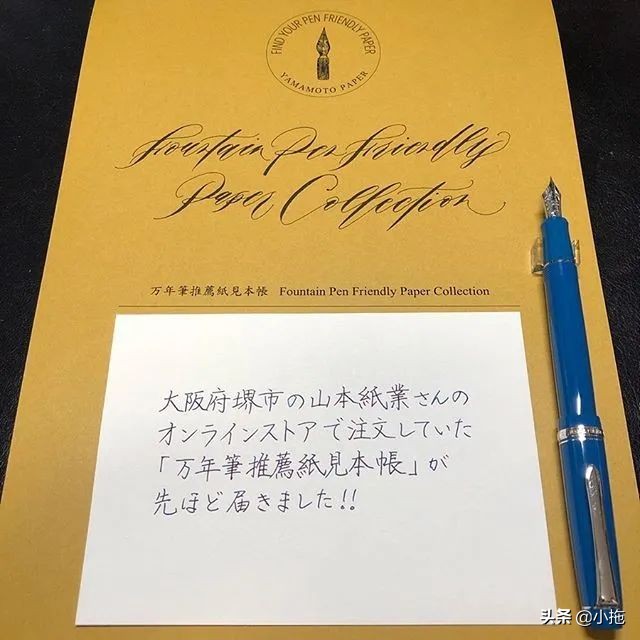 FIND YOUR PEN FRIENDLY PAPER
YAMAMOTO PAPER
Fountain Pen Friendly
Paper Collection
万年筆推薦紙見本帳 Fountain Pen Friendly Paper Collection
大阪府堺市の山本紙業さんの
オンラインストアで注文していた
「万年筆推薦紙見本帳」が
先ほど届きました!!
头条 @小拖